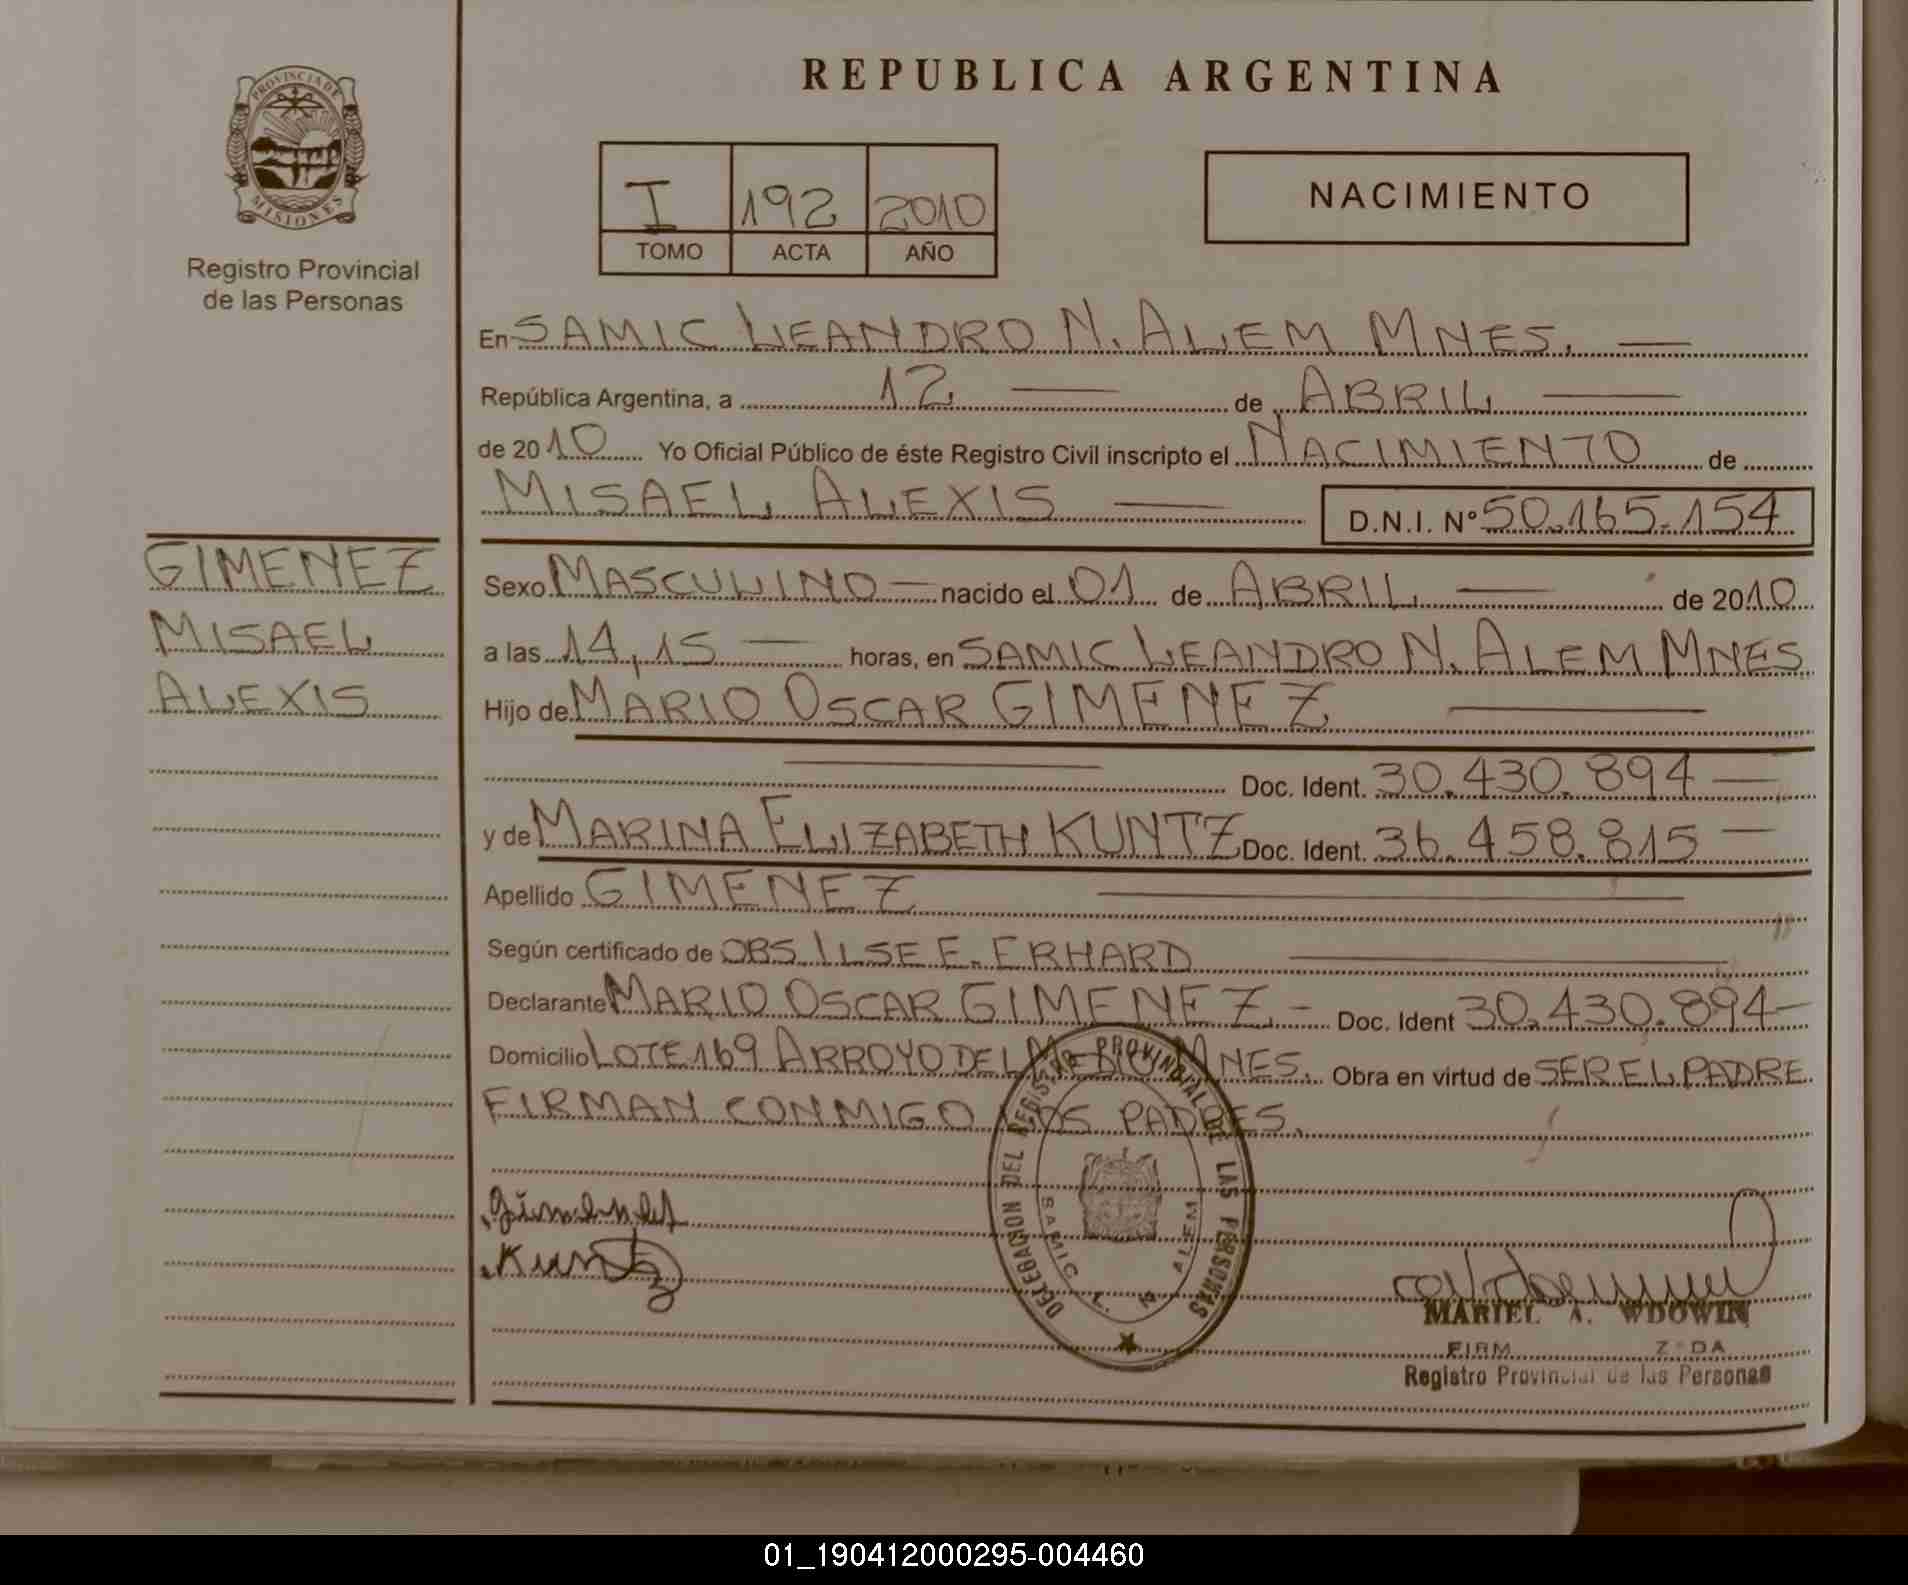 PROVINCIA DE
MISIONES
Registro Provincial
de las Personas
GIMENEZ
MISAEL
ALEXIS
REPUBLICA ARGENTINA
I 192 2010
TOMO ACTA AÑO
NACIMIENTO
En SAMIC LEANDRO N. ALEM MNES. —
República Argentina, a 12 — de ABRIL —
de 2010 Yo Oficial Público de éste Registro Civil inscripto el NACIMIENTO de
MISAEL ALEXIS — D.N.I. N° 50.165.154
Sexo MASCULINO — nacido el 01 de ABRIL — de 2010
a las 14,15 — horas, en SAMIC LEANDRO N. ALEM MNES
Hijo de MARIO OSCAR GIMENEZ —
— Doc. Ident. 30.430.894 —
y de MARINA ELIZABETH KUNTZ Doc. Ident. 36.458.815 —
Apellido GIMENEZ —
Según certificado de OBS. ILSE E. ERHARD —
Declarante MARIO OSCAR GIMENEZ - Doc. Ident 30.430.894 -
Domicilio LOTE 169 ARROYO DEL MEDIO MNES. Obra en virtud de SER EL PADRE
FIRMAN CONMIGO LOS PADRES.
DELEGACION DEL REGISTRO PROVINCIAL DE LAS PERSONAS
SAMIC L. N. ALEM
Gimenez
Kuntz
MARIEL A. WDOWIN
Registro Provincial de las Personas
01_190412000295-004460